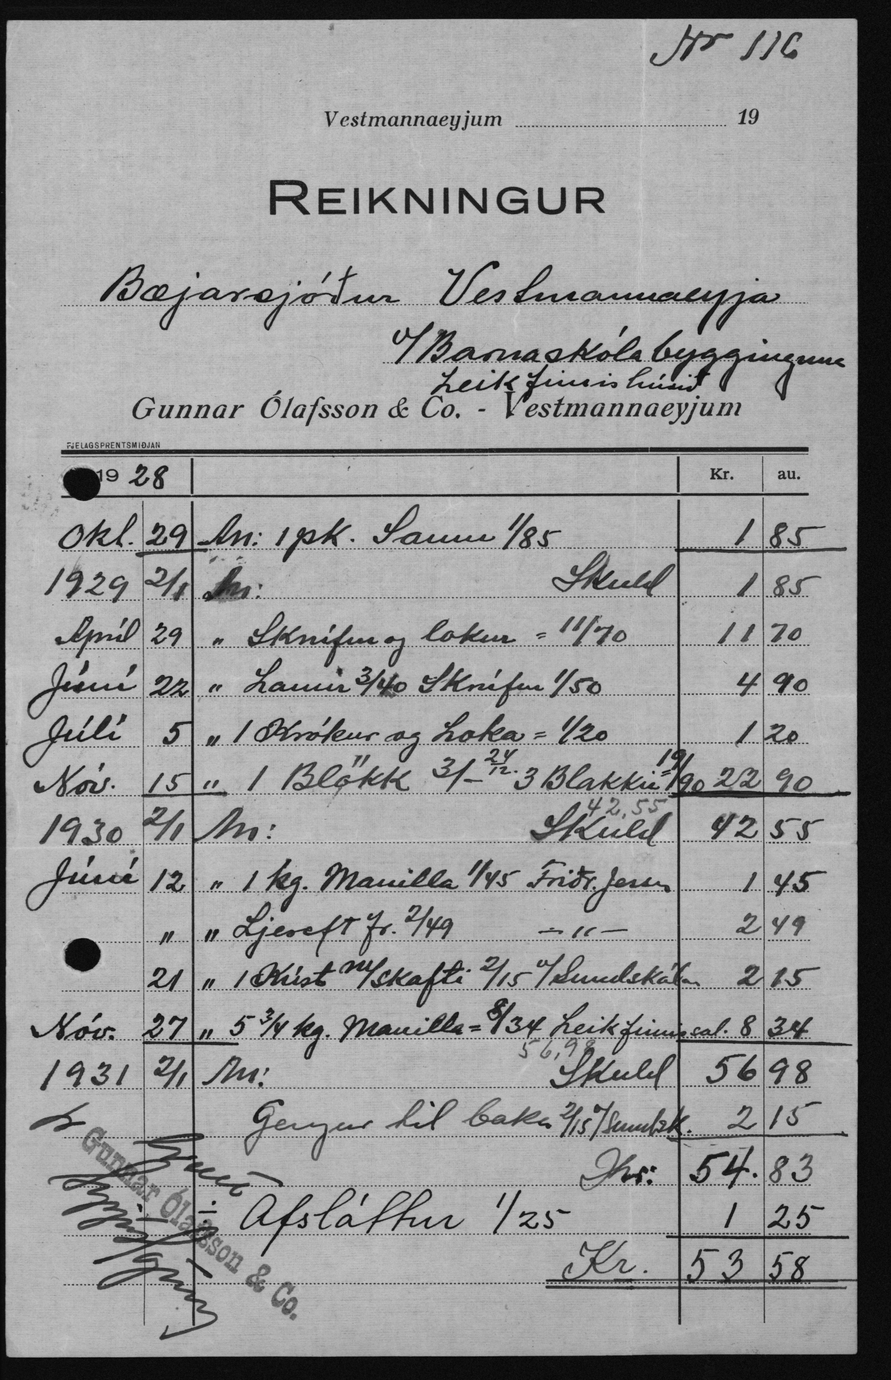 Nr 116
Vestmannaeyjum 19
REIKNINGUR
Bæjarsjóður Vestmannaeyja
v/Barnaskólabygginguna
Leikfimishúsið
Gunnar Ólafsson & Co. - Vestmannaeyjum
FJELAGSPRENTSMIÐJAN
1928 Kr. au.
Okt. 29 An: 1 pk. Saum 1/85 1 85
1929 2/1 An: Skuld 1 85
Apríl 29 " Skrúfur og lokur = 11/70 11 70
Júní 22 " Lamir 3/40 Skrúfur 1/50 4 90
Júlí 5 " 1 Krókur og Loka = 1/20 1 20
Nóv. 15 " 1 Blökk 3/- 24/12. 3 Blakkir 19/90 22 90
42,55
1930 2/1 An: Skuld 42 55
Júní 12 " 1 kg. Manilla 1/45 Friðr. Jesss 1 45
" " Ljereft fr. 2/49 -"- 2 49
21 " 1 Kúst m/skafti 2/15 v/Sundskálan 2 15
Nóv. 27 " 5 3/4 kg. Manilla = 8/34 Leikfimissal. 8 34
56,98
1931 2/1 An: Skuld 56 98
Gengur til baka 2/15 v/Sundsk. 2 15
Kr: 54. 83
÷ Afsláttur 1/25 1 25
Kr. 53 58
Gunnar Ólafsson & Co.